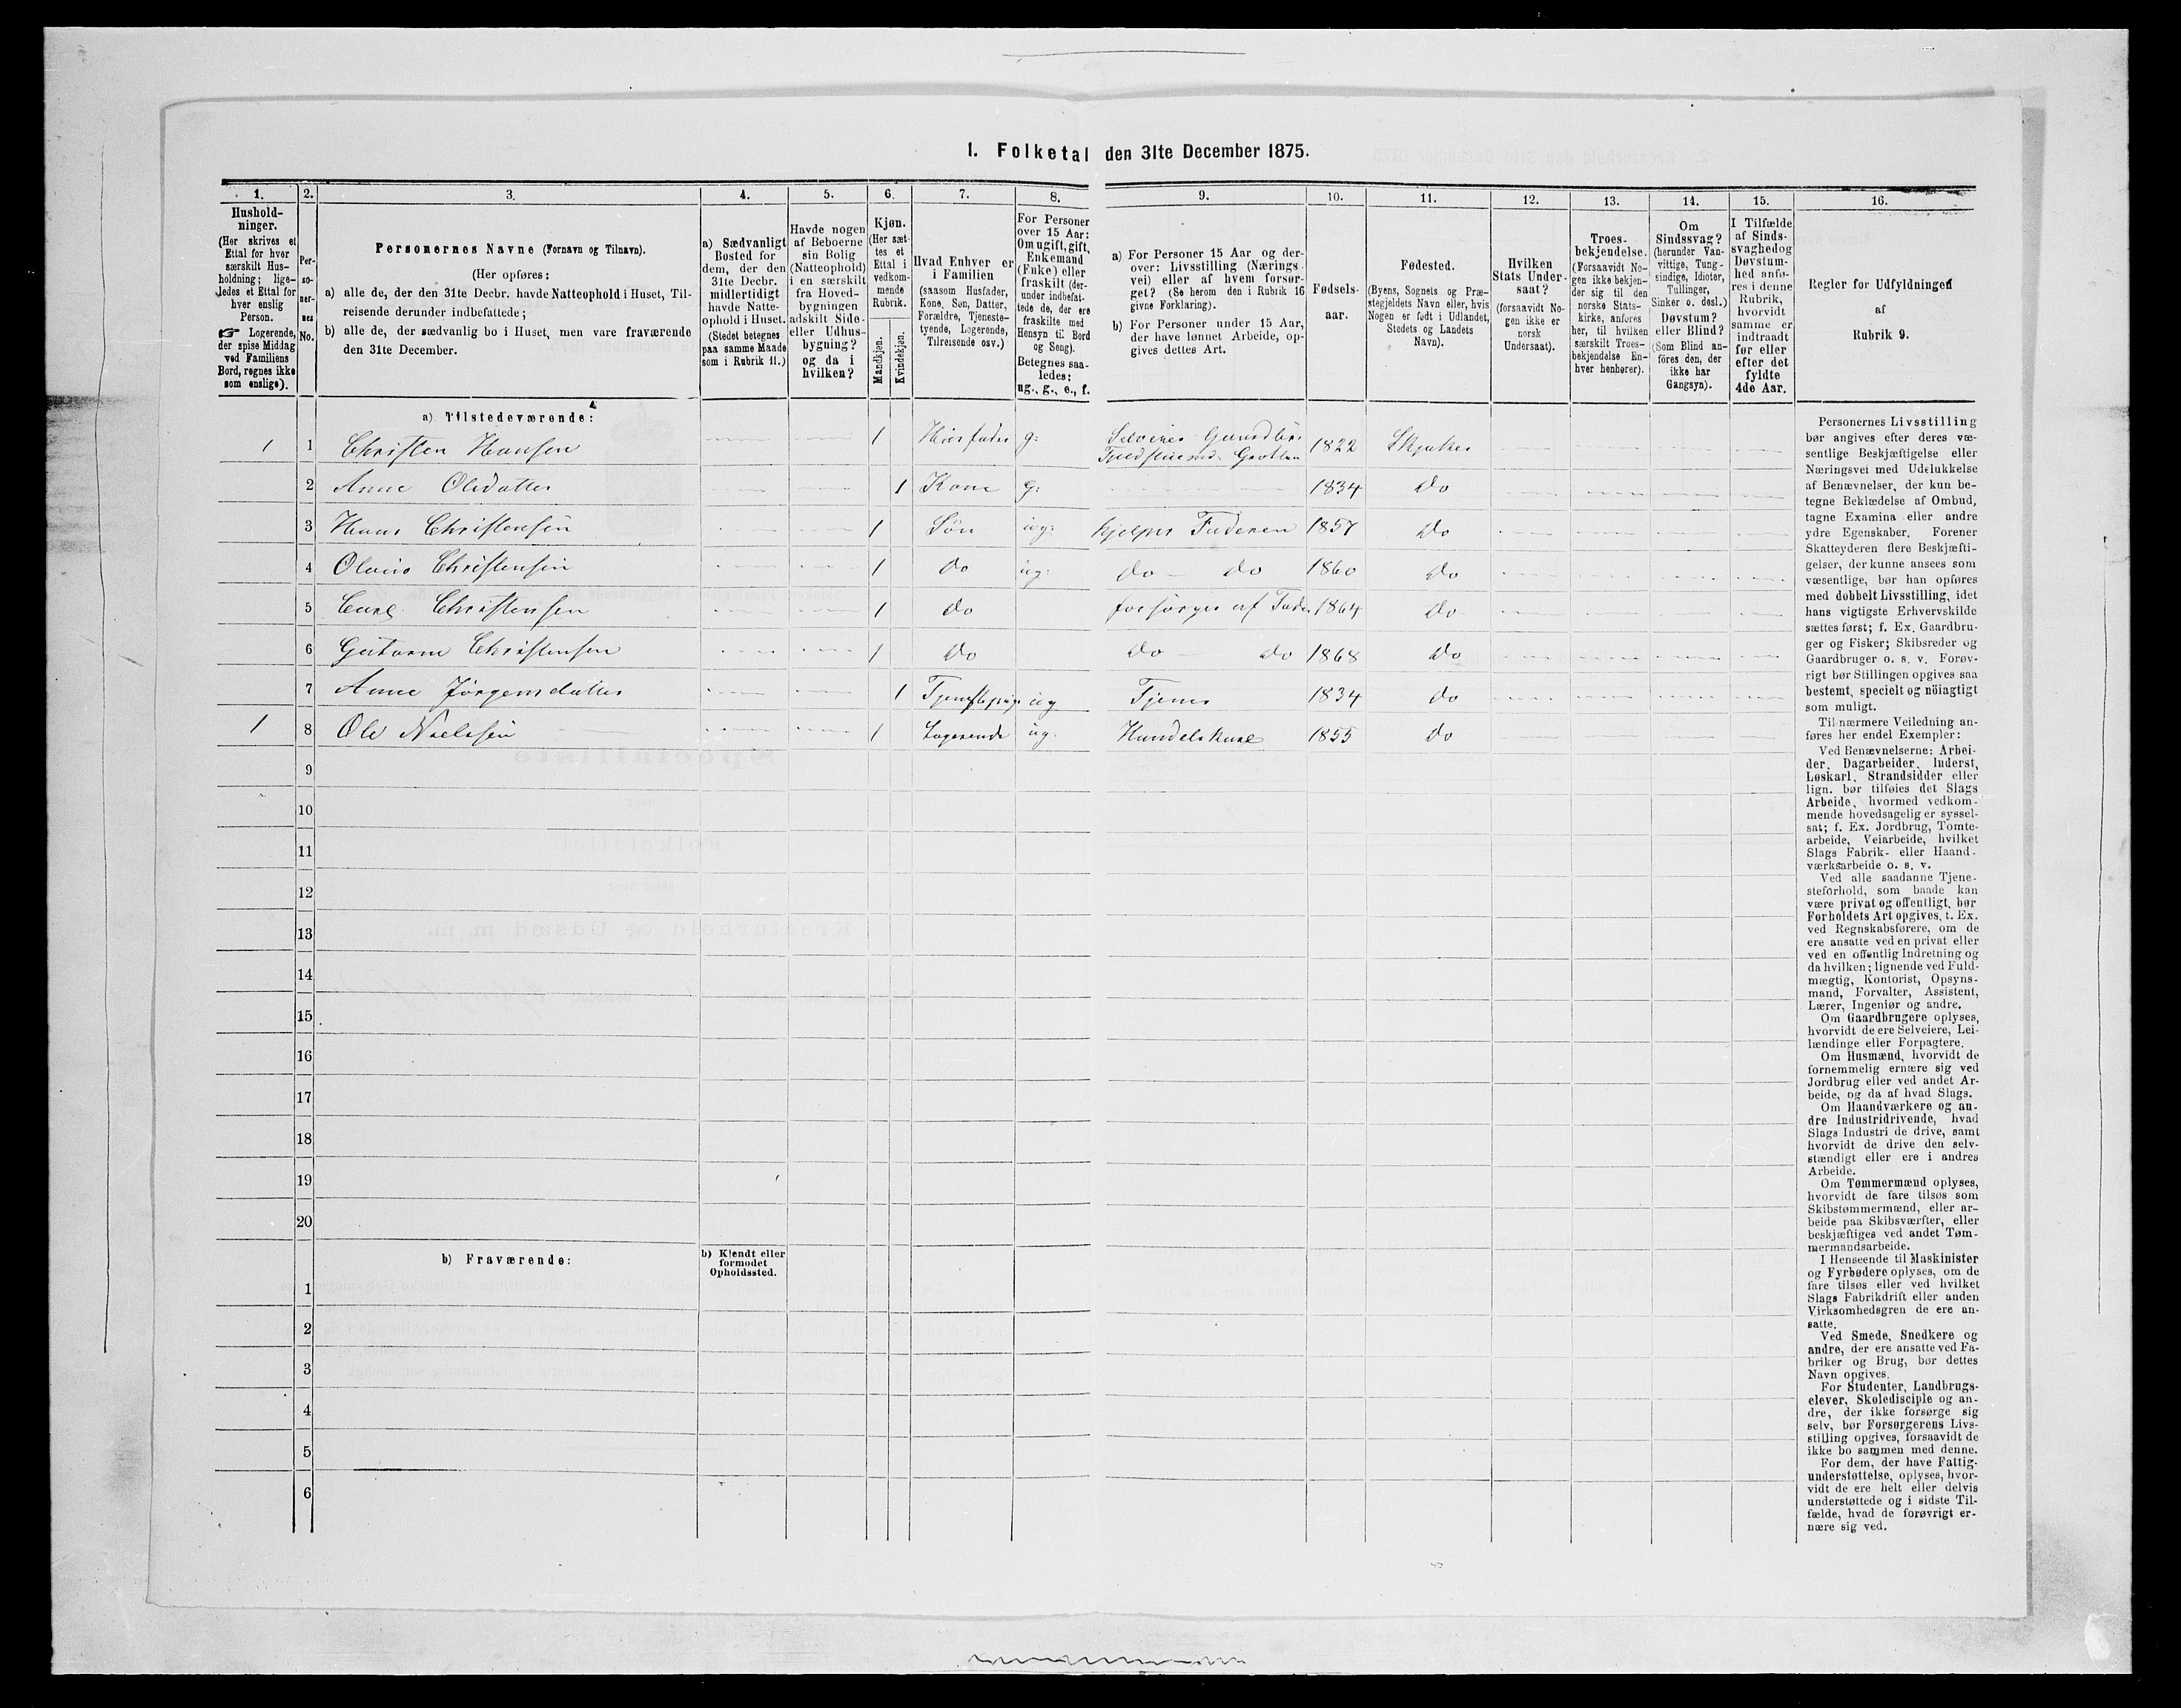 1. Folketal den 31te December 1875.
1. 2. 3. 4. 5. 6. 7. 8. 9. 10. 11. 12. 13. 14. 15. 16.
Hushold-
ninger.
(Her skrives et
Ettal for hver
særskilt Hus-
holdning; lige-
ledes et Ettal for
hver enslig
Person.
☞ Logerende,
der spise Middag
ved Familiens
Bord, regnes ikke
som enslige).
Per-
so-
ner-
nes
No.
Personernes Navne (Fornavn og Tilnavn).
(Her opføres:
a) alle de, der den 31te Decbr. havde Natteophold i Huset, Til-
reisende derunder indbefattede;
b) alle de, der sædvanlig bo i Huset, men vare fraværende
den 31te December.
a) Sædvanligt
Bosted for
dem, der den
31te Decbr.
midlertidigt
havde Natte-
ophold i Huset.
(Stedet betegnes
paa samme Maade
som i Rubrik 11.)
Havde nogen
af Beboerne
sin Bolig
(Natteophold)
i en særskilt
fra Hoved-
bygningen
adskilt Side-
eller Udhus-
bygning?
og da i
hvilken?
Kjøn.
(Her sæt-
tes et
Ettal i
vedkom-
mende
Rubrik.
Mandkjøn.
Kvindekjøn.
Hvad Enhver er
i Familien
(saasom Husfader,
Kone, Søn, Datter,
Forældre, Tjeneste-
tyende, Logerende,
Tilreisende osv.)
For Personer
over 15 Aar:
Om ugift, gift,
Enkemand
(Enke) eller
fraskilt (der-
under indbefat-
tede de, der ere
fraskilte med
Hensyn til Bord
og Seng).
Betegnes saa-
ledes:
ug., g., e., f.
a) For Personer 15 Aar og der-
over: Livsstilling (Nærings-
vei) eller af hvem forsør-
get? (Se herom den i Rubrik 16
givne Forklaring).
b) For Personer under 15 Aar,
der have lønnet Arbeide, op-
gives dettes Art.
Fødsels-
aar.
Fødested.
(Byens, Sognets og Præ-
stegjeldets Navn eller, hvis
Nogen er født i Udlandet,
Stedets og Landets
Navn).
Hvilken
Stats Under-
saat?
(forsaavidt No-
gen ikke er
norsk
Undersaat).
Troes-
bekjendelse.
(Forsaavidt No-
gen ikke bekjen-
der sig til den
norske Stats-
kirke, anføres
her, til hvilken
særskilt Troes-
bekjendelse En-
hver henhører).
Om
Sindssvag?
(herunder Van-
vittige, Tung-
sindige, Idioter,
Tullinger,
Sinker o. desl.)
Døvstum?
eller Blind?
(Som Blind an-
føres den, der
ikke har
Gangsyn).
I Tilfælde
af Sinds-
svaghed og
Døvstum-
hed anfø-
res i denne
Rubrik,
hvorvidt
samme er
indtraadt
før eller
efter det
fyldte
4de Aar.
Regler for Udfyldningen
af
Rubrik 9.
a) Tilstedeværende:
1 1 Christen Hansen 1 Huusfader g: Selveier Gaardbr: 1822 Skjaker
2 Anne Olsdatter 1 Kone g: 1834 do
3 Hans Christensen 1 Søn ug: hjelper Faderen 1857 do
4 Christensen 1 do ug: do do 1860 do
5 Carl Christensen 1 do forsørges af Fader 1864 do
6 Christensen 1 do do do 1868 do
7 Anne Jørgensdatter 1 ug Tjener 1834 do
1 8 Ole Nielsen 1 Logerende ug. Handelskarl 1855 do
9
10
11
12
13
14
15
16
17
18
19
20
b) Fraværende:
b) Kjendt eller
formodet
Opholdssted.
1
2
3
4
5
6
Personernes Livsstilling
bør angives efter deres væ-
sentlige Beskjæftigelse eller
Næringsvei med Udelukkelse
af Benævnelser, der kun be-
tegne Beklædelse af Ombud,
tagne Examina eller andre
ydre Egenskaber. Forener
Skatteyderen flere Beskjæfti-
gelser, der kunne ansees som
væsentlige, bør han opføres
med dobbelt Livsstilling, idet
hans vigtigste Erhvervskilde
sættes først; f. Ex. Gaardbru-
ger og Fisker; Skibsreder og
Gaardbruger o. s. v. Forøv-
rigt bør Stillingen opgives saa
bestemt, specielt og nöiagtigt
som muligt.
Til nærmere Veiledning an-
føres her endel Exempler:
Ved Benævnelserne: Arbei-
der, Dagarbeider, Inderst,
Løskarl, Strandsidder eller
lign. bør tilføies det Slags
Arbeide, hvormed vedkom-
mende hovedsagelig er syssel-
sat; f. Ex. Jordbrug, Tomte-
arbeide, Veiarbeide, hvilket
Slags Fabrik- eller Haand-
værksarbeide o. s. v.
Ved alle saadanne Tjene-
steforhold, som baade kan
være privat og offentligt, bør
Forholdets Art opgives, t. Ex.
ved Regnskabsførere, om de
ere ansatte ved en privat eller
ved en offentlig Indretning og
da hvilken; lignende ved Fuld-
mægtig, Kontorist, Opsyns-
mand, Forvalter, Assistent,
Lærer, Ingeniør og andre.
Om Gaardbrugere oplyses,
hvorvidt de ere Selveiere, Lei-
lændinge eller Forpagtere.
Om Husmænd, hvorvidt de
fornemmelig ernære sig ved
Jordbrug eller ved andet Ar-
beide, og da af hvad Slags.
Om Haandværkere og an-
dre Industridrivende, hvad
Slags Industri de drive, samt
hvorvidt de drive den selv-
stændigt eller ere i andres
Arbeide.
Om Tømmermænd oplyses,
hvorvidt de fare tilsøs som
Skibstømmermænd, eller ar-
beide paa Skibsværfter, eller
beskjæftiges ved andet Tøm-
mermandsarbeide.
I Henseende til Maskinister
og Fyrbødere oplyses, om de
fare tilsøs eller ved hvilket
Slags Fabrikdrift eller anden
Virksomhedsgren de ere an-
satte.
Ved Smede, Snedkere og
andre, der ere ansatte ved Fa-
briker og Brug, bør dettes
Navn opgives.
For Studenter, Landbrugs-
elever, Skoledisciple og an-
dre, der ikke forsørge sig
selv, bør Forsørgerens Livs-
stilling opgives, forsaavidt de
ikke bo sammen med denne.
For dem, der have Fattig-
understøttelse, oplyses, hvor-
vidt de ere helt eller delvis
understøttede og i sidste Til-
fælde, hvad de forøvrigt er-
nære sig ved.